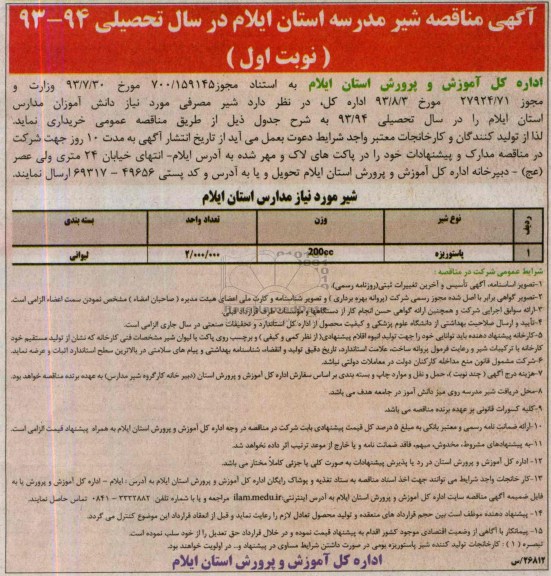 آگهی مناقصه شیر مدرسه استان ایلام در سال تحصیلی ۹۴-۹۳
( نوبت اول )
اداره کل آموزش و پرورش استان ایلام به استناد مجوز۷۰۰/۱۵۹۱۴۵ مورخ ۹۳/۷/۳۰ وزارت و
مجوز ۲۷۹۲۴/۷۱ مورخ ۹۳/۸/۳ اداره کل، در نظر دارد شیر مصرفی مورد نیاز دانش آموزان مدارس
استان ایلام را در سال تحصیلی ۹۳/۹۴ به شرح جدول ذیل از طریق مناقصه عمومی خریداری نماید.
لذا از تولید کنندگان و کارخانجات معتبر واجد شرایط دعوت بعمل می آید از تاریخ انتشار آگهی به مدت ۱۰ روز جهت شرکت
در مناقصه مدارک و پیشنهادات خود را در پاکت های لاک و مهر شده به آدرس ایلام- انتهای خیابان ۲۴ متری ولی عصر
(عج) - دبیرخانه اداره کل آموزش و پرورش استان ایلام تحویل و یا به آدرس و کد پستی ۴۹۶۵۶ - ۶۹۳۱۷ ارسال نمایند.
شیر مورد نیاز مدارس استان ایلام
ردیف نوع شیر وزن تعداد واحد بسته بندی
۱ پاستوریزه 200cc ۲/۰۰۰/۰۰۰ لیوانی
شرایط عمومی شرکت در مناقصه :
۱-تصویر اساسنامه، آگهی تأسیس و آخرین تغییرات ثبتی(روزنامه رسمی)
۲-تصویر گواهی برابر با اصل شده مجوز رسمی شرکت (پروانه بهره برداری ) و تصویر شناسنامه و کارت ملی اعضای هیئت مدیره ( صاحبان امضاء ) مشخص نمودن سمت امضاء الزامی است.
۳-ارائه سوابق اجرایی شرکت و همچنین ارائه گواهی حسن انجام کار از دستگاهها و مؤسسات طرف قرارداد قبلی
۴-تأیید و ارسال صلاحیت بهداشتی از دانشگاه علوم پزشکی و کیفیت محصول از اداره کل استاندارد و تحقیقات صنعتی در سال جاری الزامی است.
۵-کارخانه پیشنهاد دهنده باید توانایی خود را جهت تولید انبوه اقلام پیشنهادی( از نظر کمی و کیفی ) و برچسب روی پاکت یا لیوان شیر مشخصات فنی کارخانه که نشان از تولید مستقیم خود
کارخانه با ترکیبات شیر و رعایت فرمول پروانه ساخت، علامت استاندارد، تاریخ دقیق تولید و انقضاء، شناسنامه بهداشتی و پیام های سلامتی در بالاترین سطح استاندارد اثبات و عرضه نماید.
۶-شرکت مشمول قانون منع مداخله کارکنان دولت در معاملات دولتی نباشد.
۷-هزینه درج آگهی ( چند نوبت )، حمل و نقل و موارد چاپ و بسته بندی بر اساس سفارش اداره کل آموزش و پرورش استان (دبیر خانه کارگروه شیر مدارس) به عهده برنده مناقصه خواهد بود.
۸-محل دریافت شیر مدرسه روی میز دانش آموز در جامعه هدف می باشد.
۹-کلیه کسورات قانونی بر عهده برنده مناقصه می باشد.
۱۰-ارائه ضمانت نامه رسمی و معتبر بانکی به مبلغ ۵ درصد کل قیمت پیشنهادی بابت شرکت در مناقصه در وجه اداره کل آموزش و پرورش استان ایلام به همراه پیشنهاد قیمت الزامی است.
۱۱-به پیشنهادهای مشروط، مخدوش، مبهم، فاقد ضمانت نامه و یا خارج از موعد ترتیب اثر داده نخواهد شد.
۱۲- اداره کل آموزش و پرورش استان در رد یا پذیرش پیشنهادات به صورت کلی یا جزئی کاملاً مختار می باشد.
۱۳- کار خانجات واجد شرایط می توانند جهت اخذ اسناد مناقصه به ستاد تغذیه و پوشاک رایگان اداره کل آموزش و پرورش استان ایلام به آدرس : ایلام - اداره کل آموزش و پرورش یا به
فایل ضمیمه آگهی مناقصه سایت اداره کل آموزش و پرورش استان ایلام به آدرس اینترنتی:ilam.medu.ir مراجعه و یا با شماره تلفن ۳۳۳۲۸۸۲ - ۰۸۴۱ تماس حاصل نمایند.
۱۴- پیشنهاد دهنده موظف است بین حجم قرارداد های منعقده و تولید محصول تعادل لازم را رعایت نماید و قبل از انعقاد قرارداد این موضوع کنترل می گردد.
۱۵- پیمانکار با آگاهی از وضعیت اقتصادی موجود کشور اقدام به پیشنهاد قیمت نموده و در خلال قرارداد حق تعدیل را از خود سلب نموده است.
تبصره ( ۱ ) : کارخانجات تولید کننده شیر پاستوریزه بومی در صورت داشتن شرایط مساوی در پیشنهاد و.. در اولویت خواهند بود.
اداره کل آموزش و پرورش استان ایلام
۲۶۸۱۲/س